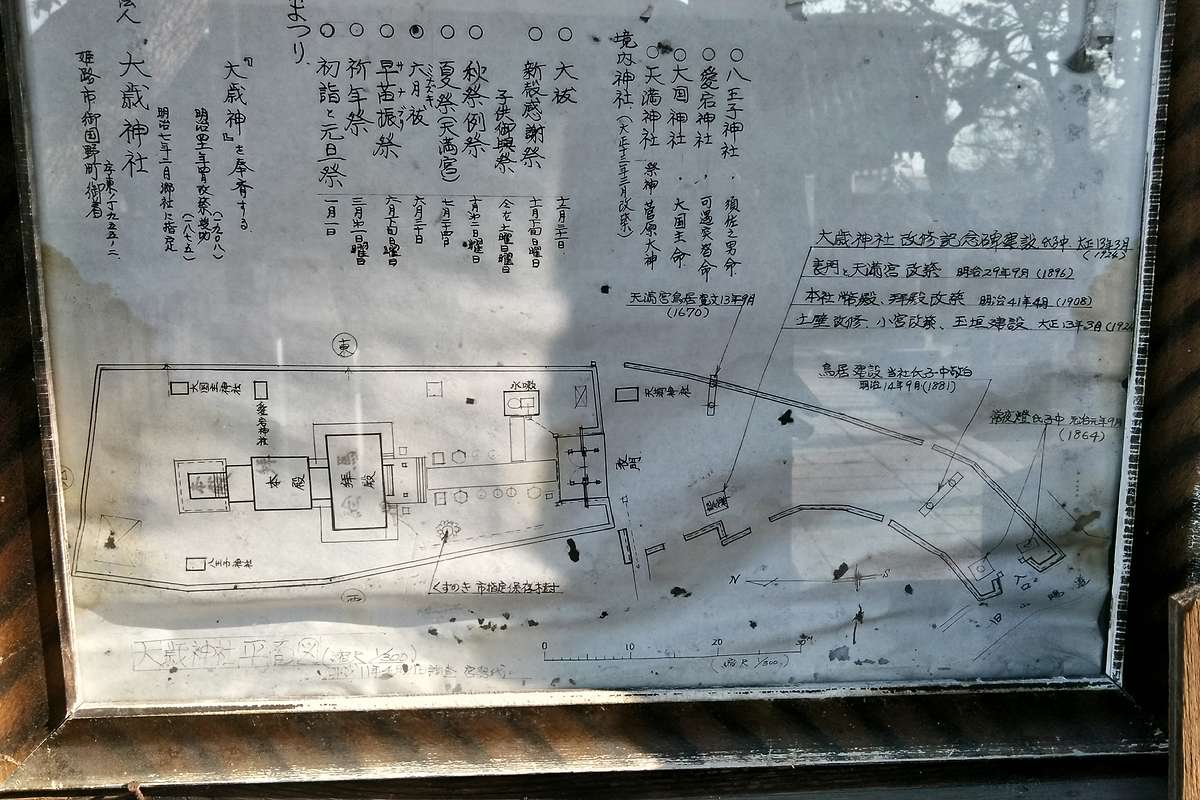 ○八王子神社 須佐之男命
○愛宕神社 〃 可遇突智命
○大国神社 〃 大国主命
○天満神社 祭神 菅原大神
境内神社 (大正十三年三月改築)
○大祓 十二月三一日
○新穀感謝祭 十一月下旬日曜日
子供御輿祭 〃 土曜日
○秋祭例祭 十月第二日曜日
○夏祭(天満宮) 七月二五日
○六月祓 六月三十日
○早苗振祭 サナブリ 六月下旬日曜日
○祈年祭 三月第一日曜日
○初詣と元旦祭 一月一日
まつり
『大歳神』を奉斎する
明治四一年四月改築竣功 (一九〇八)
明治七年二月郷社に指定 (一八七五)
法人 大歳神社
姫路市御国野町御着
大歳神社改修記念碑建設 氏子中 大正13年3月 (1924)
表門と天満宮改築 明治29年9月 (1896)
本社幣殿、拝殿改築 明治41年4月 (1908)
土塀改修、小宮改築、玉垣建設 大正13年3月
天満宮鳥居 寛文13年9月
(1670)
鳥居建設 当社氏子中敬白
明治14年9月(1881)
常夜燈 氏子中 元治元年9月
(1864)
東
大国主神社
愛宕神社
水嗽
天満神社
表門
本殿
幣殿
拝殿
八王子神社
西
くすのき 市指定保存樹
N S
旧山陽道
大歳神社平面図 (縮尺 1/300)
0 10 20 30M
(縮尺 1/300)